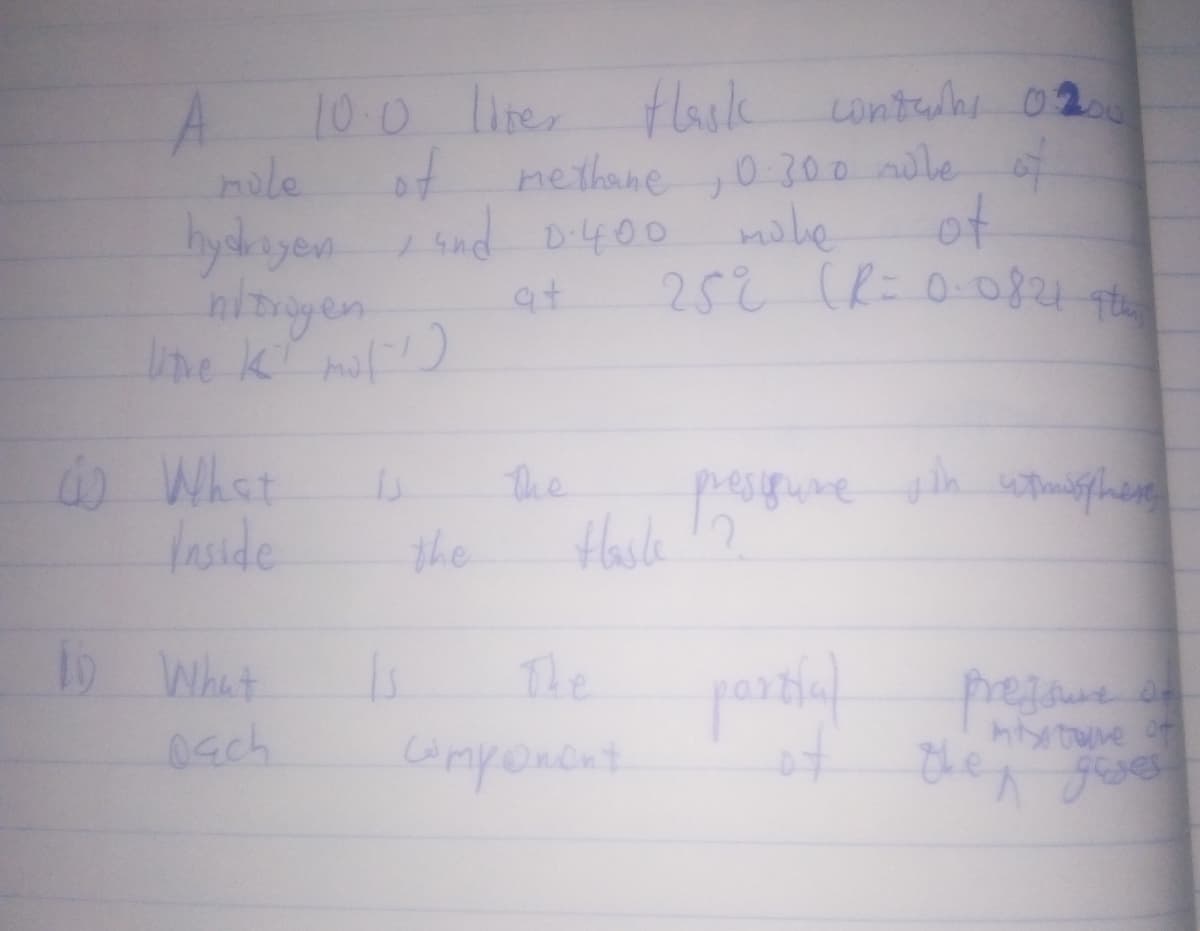 A 10.0 liter flask contains 0.200
mole of methane, 0.300 mole of
hydrogen, and 0.400 mole of
nitrogen at 25℃ (R= 0.0821 atm
litre K⁻¹ mol⁻¹)
(i) What is the pressure, in atmosphere,
inside the flask?
ii) What is the partial pressure of
each component of the mixture of gases